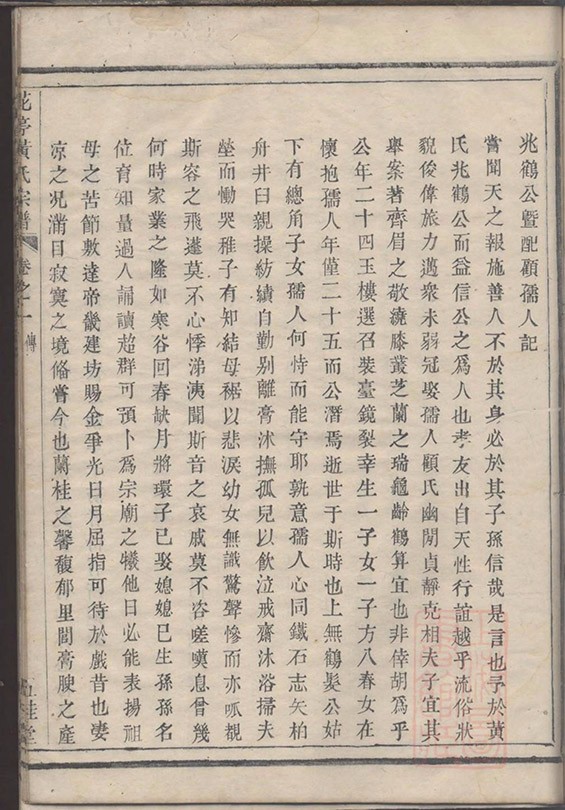 兆鶴公暨配顧孺人記
嘗聞天之報施善人不於其身必於其子孫信哉是言也予於黃
氏兆鶴公而益信公之爲人也孝友出自天性行誼越乎流俗狀
貌俊偉旅力邁衆未弱冠娶孺人顧氏幽閒貞靜克相夫子宜其
舉案著齊眉之敬繞膝叢芝蘭之瑞龜齡鶴算宜也非倖胡爲乎
公年二十四玉樓選召裝臺鏡裂幸生一子女一子方八春女在
懷抱孺人年僅二十五而公潛焉逝世于斯時也上無鶴髮公姑
下有總角子女孺人何恃而能守耶孰意孺人心同鐵石志矢柏
舟井臼親操紡績自勤別離膏沐撫孤兒以飲泣戒齋沐浴掃夫
塋而慟哭稚子有知結母裾以悲淚幼女無識驚聲慘而亦呱覩
斯容之飛蓬莫不心悸涕洟聞斯音之哀戚莫不咨嗟嘆息曾幾
何時家業之隆如寒谷回春缺月將環子已娶媳媳已生孫孫名
位育知量過人誦讀超群可預卜爲宗廟之犧他日必能表揚祖
母之苦節敷達帝畿建坊賜金爭光日月屈指可待於戲昔也妻
凉之况滿目寂寞之境備嘗今也蘭桂之馨馥郁里閭膏腴之產
花亭黃氏宗譜
卷之一
傳
桂堂